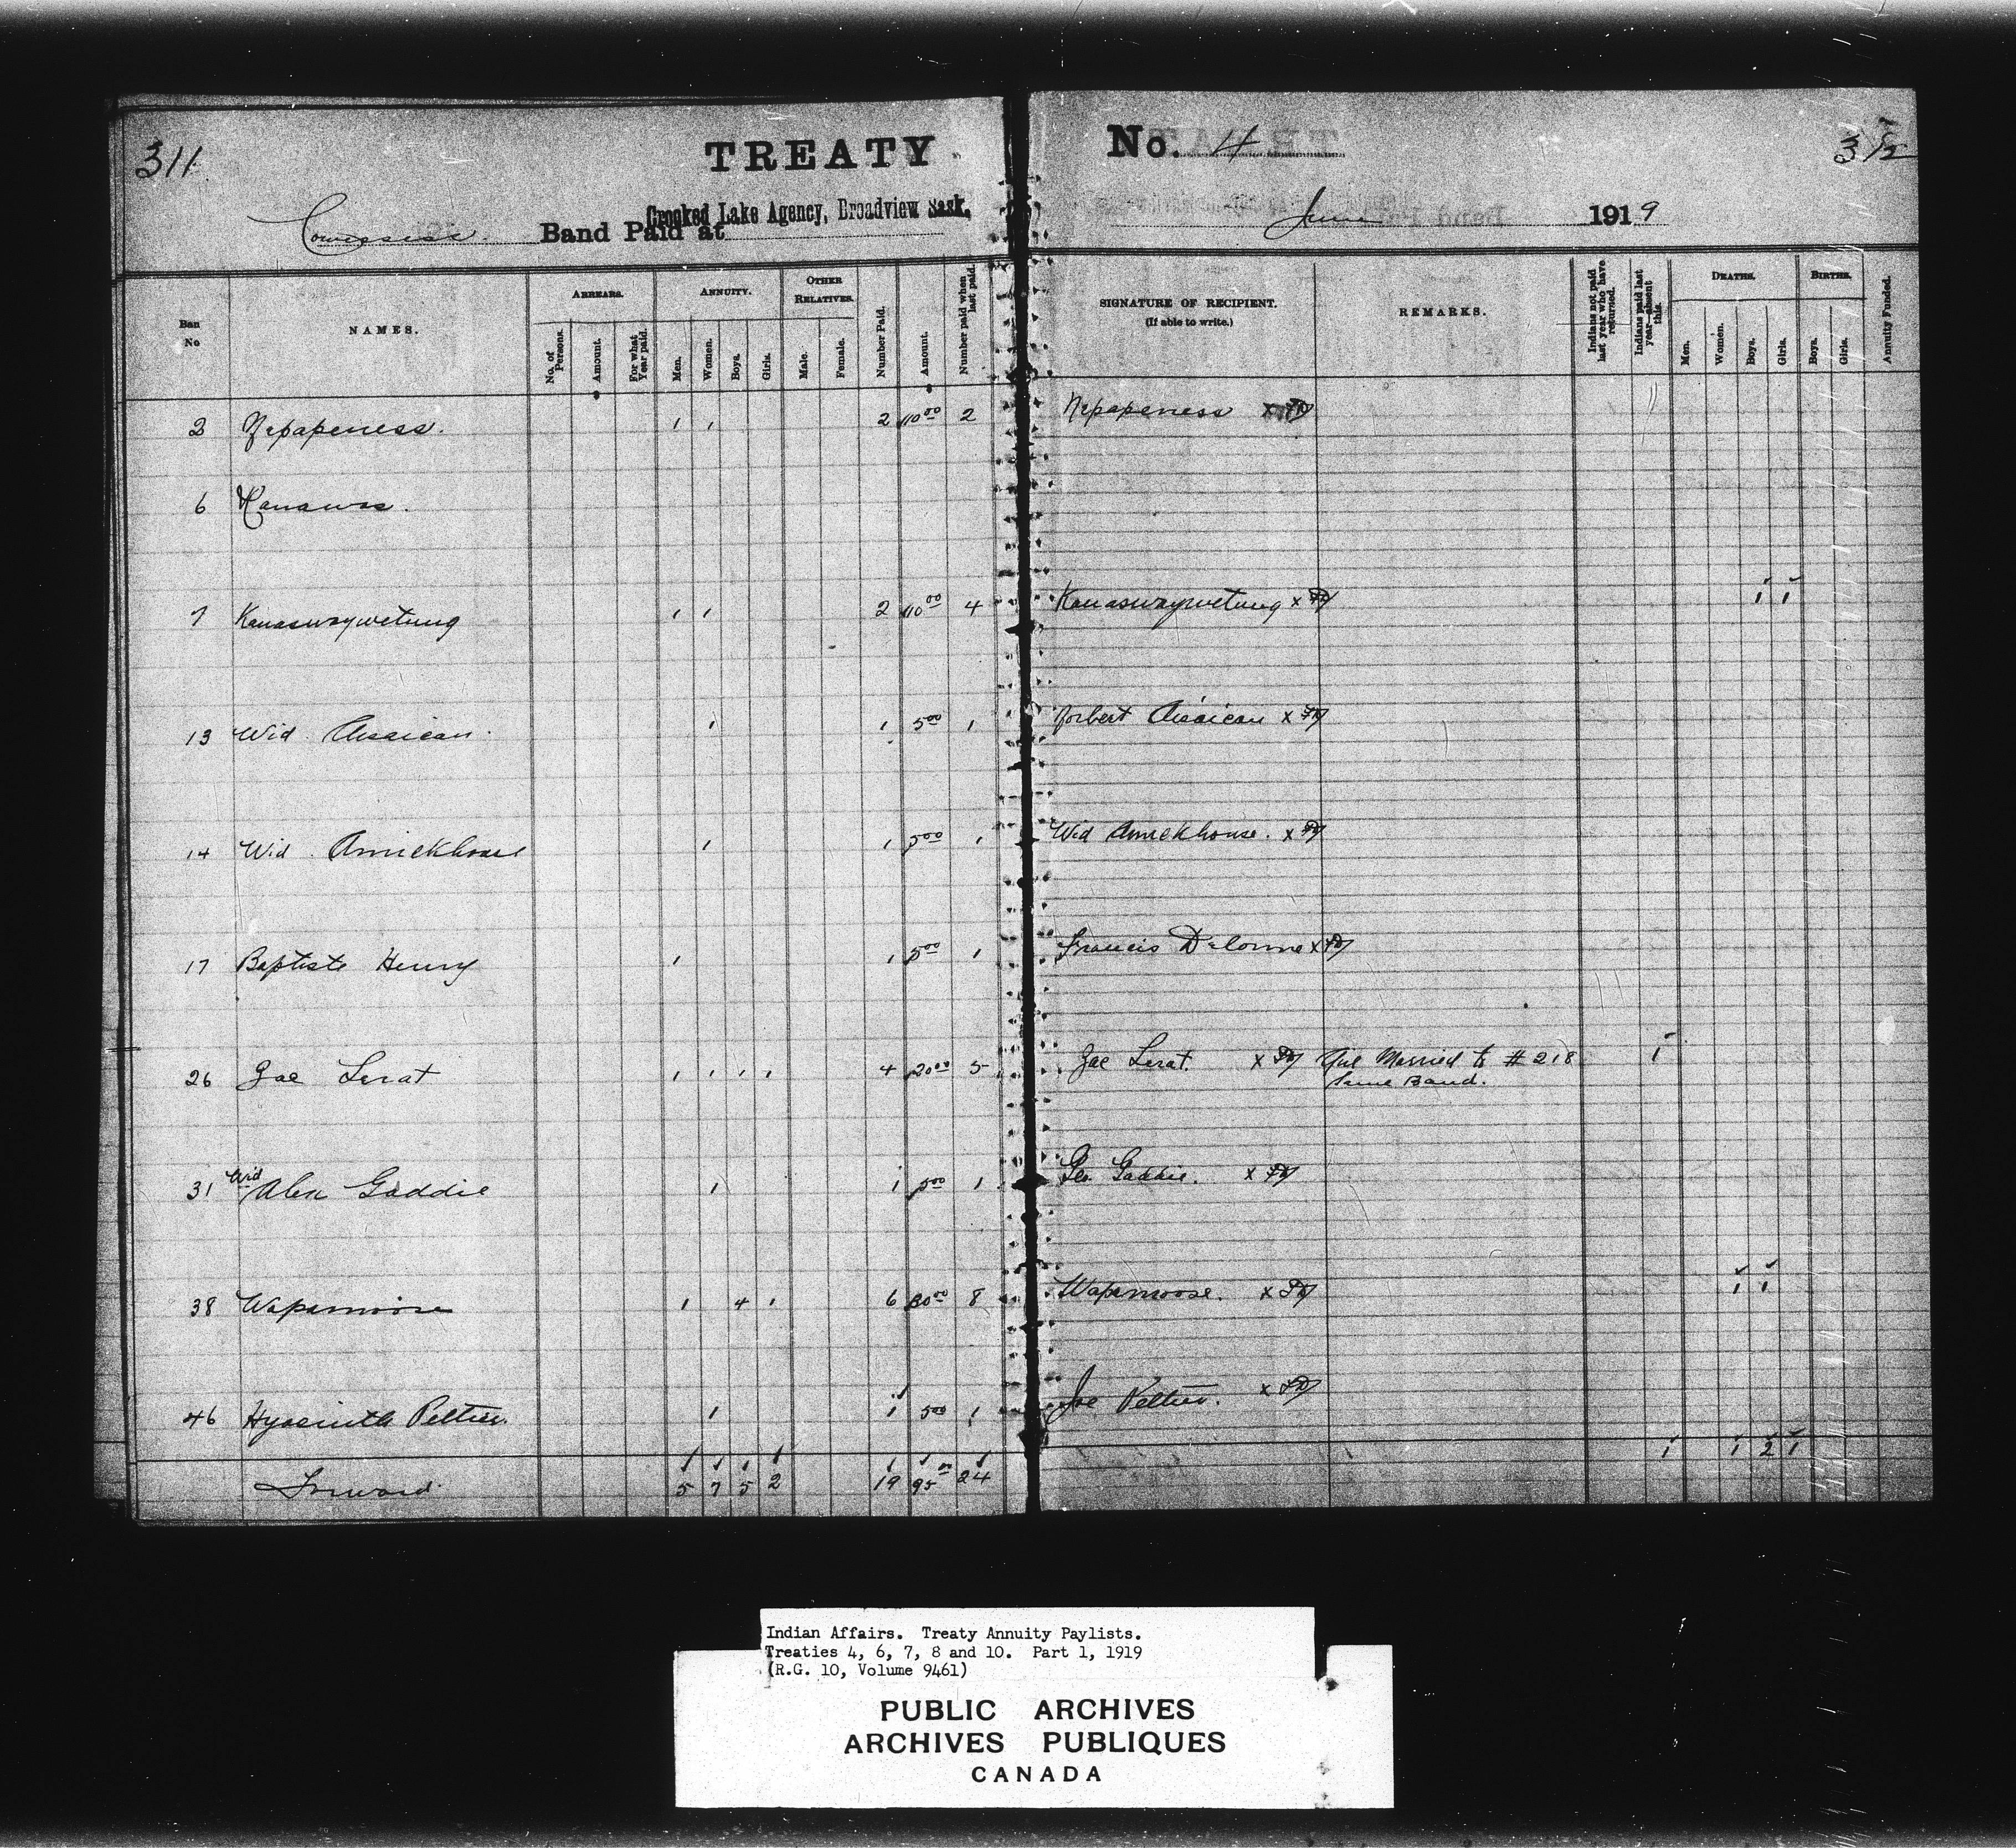 311 TREATY No. 4 312
Cowessess Band Paid at Crooked Lake Agency, Broadview Sask. June 1919
Ban No NAMES. ARREARS. No. of Persons. Amount. For what Year paid. ANNUITY. Men. Women. Boys. Girls. OTHER RELATIVES. Male. Female. Number Paid. Amount. Number paid when last paid. SIGNATURE OF RECIPIENT. (If able to write.) REMARKS. Indians not paid last year who have returned. Indians paid last year—absent this. DEATHS. Men. Women. Boys. Girls. BIRTHS. Boys. Girls. Annuity Funded.
2 Nepapeness. 1 1 2 10.00 2 Nepapeness x
6 Kanawas.
7 Kanaswaywetung 1 1 2 10.00 4 Kanaswaywetung x 1 1
13 Wid Assaican. 1 1 5.00 1 Norbert Assaican x
14 Wid. Amiekhouse 1 1 5.00 1 Wid Amiekhouse. x
17 Baptiste Henry 1 1 5.00 1 Francis Delorme x
26 Zac Lerat 1 1 1 1 4 20.00 5 Zac Lerat. x Girl Married to # 218 1
Same Band.
31 Wid Alex Gaddie 1 1 5.00 1 Geo Gaddie. x
38 Wapamoose 1 4 1 6 30.00 8 Wapamoose. x 1 1
46 Hyacinth Peltier. 1 1 5.00 1 Joe Peltier. x
1 1 2 1
Forward 5 7 5 2 19 95.00 24
Indian Affairs. Treaty Annuity Paylists.
Treaties 4, 6, 7, 8 and 10. Part 1, 1919
(R.G. 10, Volume 9461)
PUBLIC ARCHIVES
ARCHIVES PUBLIQUES
CANADA